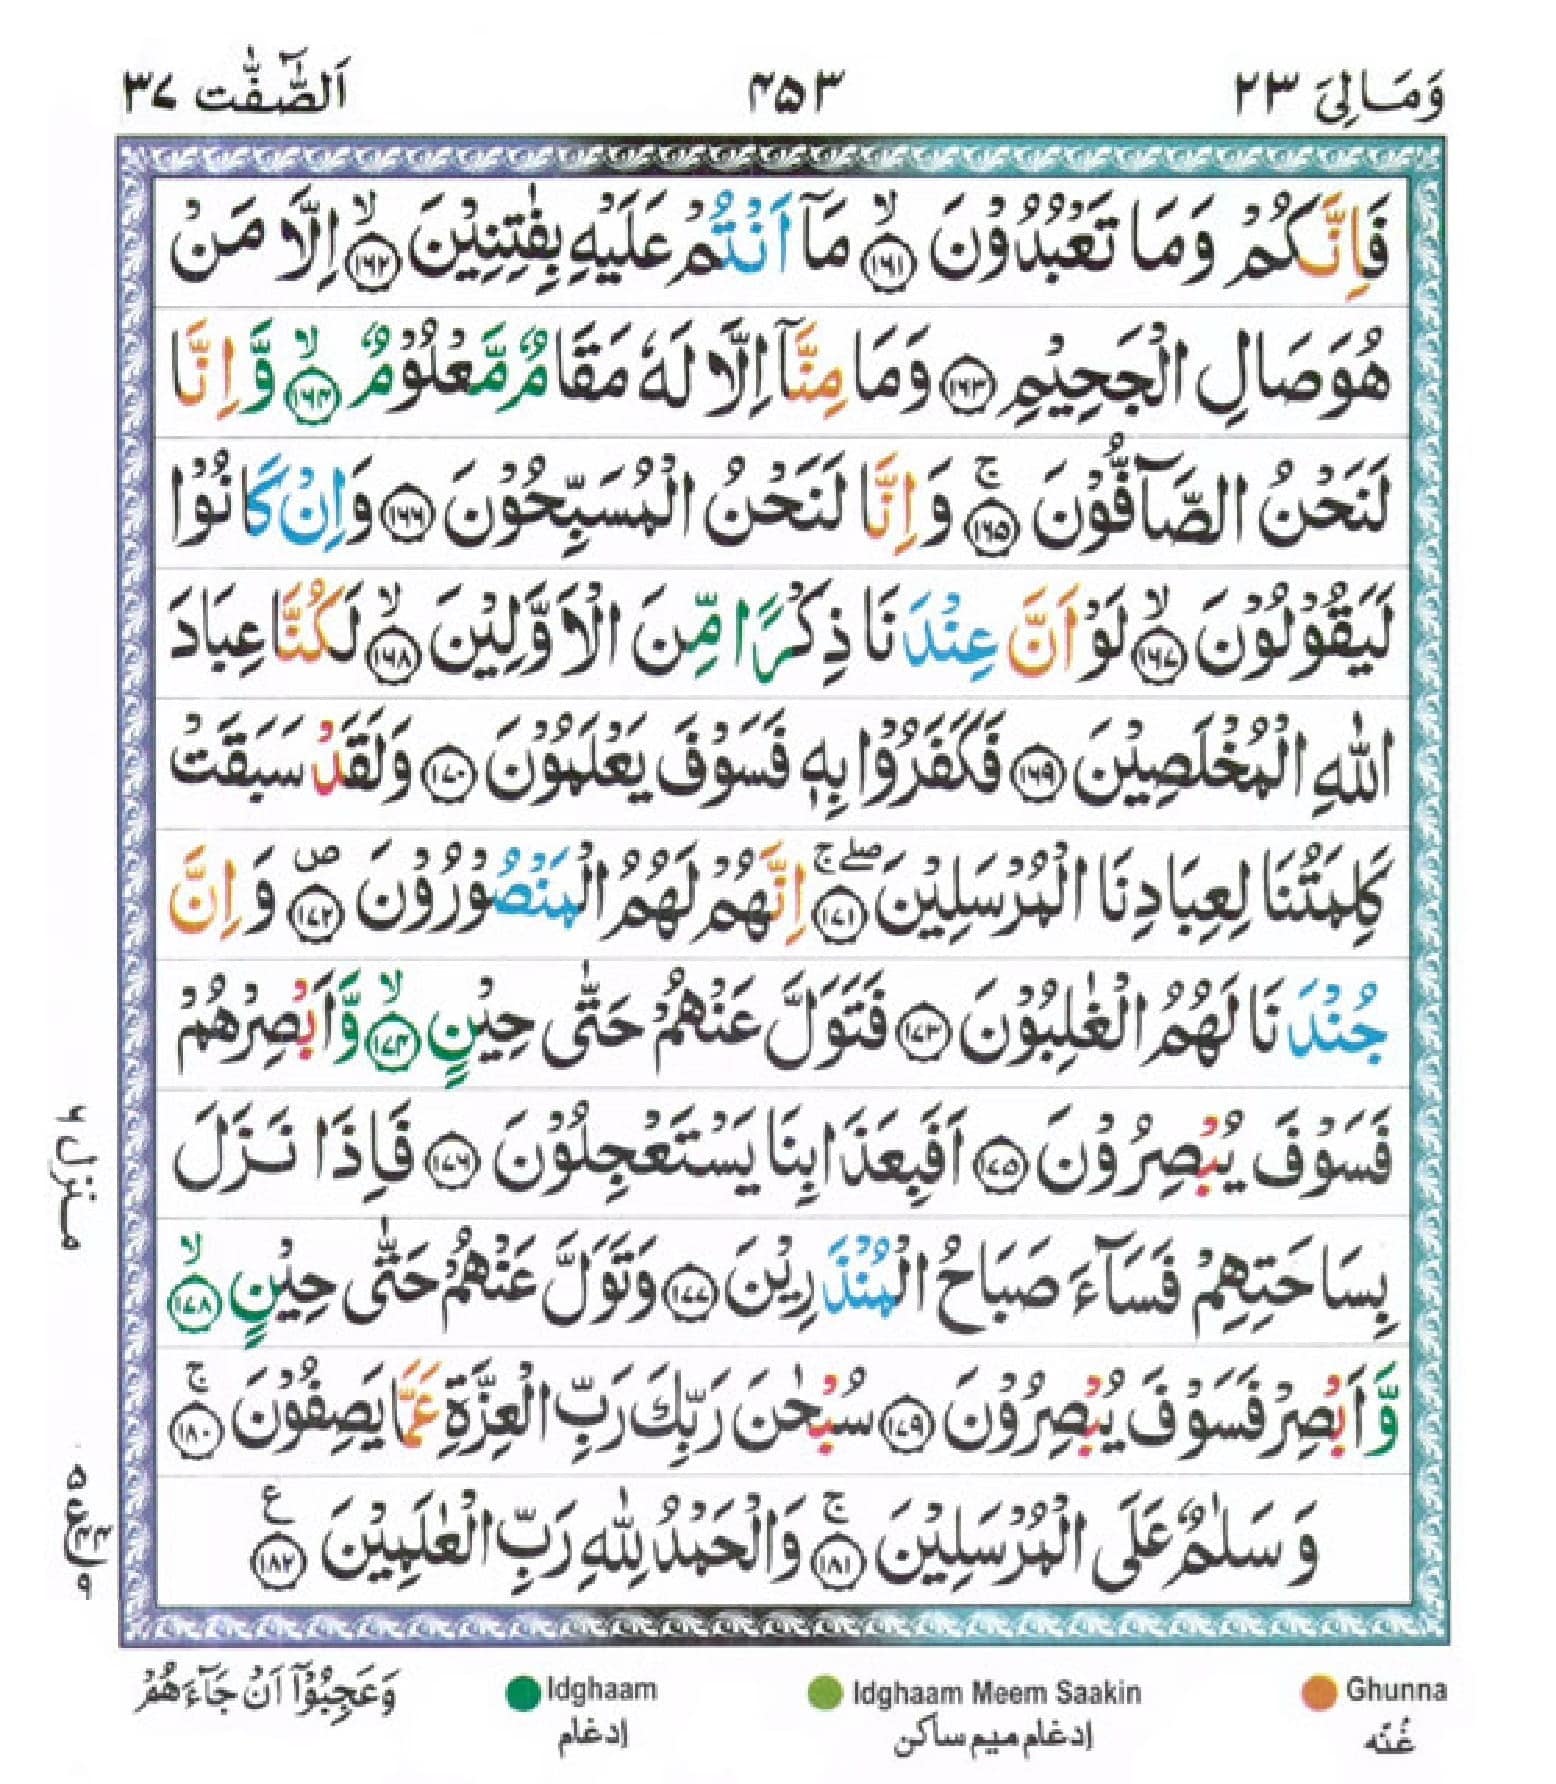 وَمَالِیَ ٢٣ ۴۵۳ اَلصّٰٓفّٰت ٣٧
فَاِنَّكُمْ وَمَا تَعْبُدُوْنَ ۙ﴿١٦١﴾ مَاۤ اَنْتُمْ عَلَيْهِ بِفٰتِنِيْنَ ۙ﴿١٦٢﴾ اِلَّا مَنْ
هُوَ صَالِ الْجَحِيْمِ ﴿١٦٣﴾ وَمَا مِنَّاۤ اِلَّا لَهٗ مَقَامٌ مَّعْلُوْمٌ ۙ﴿١٦٤﴾ وَّ اِنَّا
لَنَحْنُ الصَّآفُّوْنَ ۚ﴿١٦٥﴾ وَ اِنَّا لَنَحْنُ الْمُسَبِّحُوْنَ ﴿١٦٦﴾ وَاِنْ كَانُوْا
لَيَقُوْلُوْنَ ۙ﴿١٦٧﴾ لَوْ اَنَّ عِنْدَنَا ذِكْرًا مِّنَ الْاَوَّلِيْنَ ۙ﴿١٦٨﴾ لَكُنَّا عِبَادَ
اللّٰهِ الْمُخْلَصِيْنَ ﴿١٦٩﴾ فَكَفَرُوْا بِهٖ فَسَوْفَ يَعْلَمُوْنَ ﴿١٧٠﴾ وَلَقَدْ سَبَقَتْ
كَلِمَتُنَا لِعِبَادِنَا الْمُرْسَلِيْنَ ۖۚ﴿١٧١﴾ اِنَّهُمْ لَهُمُ الْمَنْصُوْرُوْنَ ص﴿١٧٢﴾ وَ اِنَّ
جُنْدَنَا لَهُمُ الْغٰلِبُوْنَ ﴿١٧٣﴾ فَتَوَلَّ عَنْهُمْ حَتّٰى حِيْنٍ ۙ﴿١٧٤﴾ وَّاَبْصِرْهُمْ
فَسَوْفَ يُبْصِرُوْنَ ﴿١٧٥﴾ اَفَبِعَذَابِنَا يَسْتَعْجِلُوْنَ ﴿١٧٦﴾ فَاِذَا نَزَلَ
بِسَاحَتِهِمْ فَسَآءَ صَبَاحُ الْمُنْذَرِيْنَ ﴿١٧٧﴾ وَتَوَلَّ عَنْهُمْ حَتّٰى حِيْنٍ ۙ﴿١٧٨﴾
وَّاَبْصِرْ فَسَوْفَ يُبْصِرُوْنَ ﴿١٧٩﴾ سُبْحٰنَ رَبِّكَ رَبِّ الْعِزَّةِ عَمَّا يَصِفُوْنَ ۚ﴿١٨٠﴾
وَ سَلٰمٌ عَلَى الْمُرْسَلِيْنَ ۚ﴿١٨١﴾ وَالْحَمْدُ لِلّٰهِ رَبِّ الْعٰلَمِيْنَ ع﴿١٨٢﴾
منزل ٦
۵
ع
۹
Ghunna Idghaam Meem Saakin Idghaam وَعَجِبُوْۤا اَنْ جَآءَهُمْ
غُنّه ادغام ميم ساكن ادغام